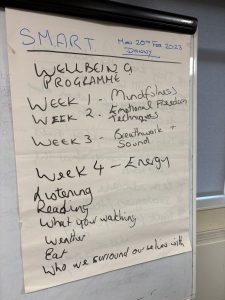 SMART
Mon 20th Feb 2023
Danny
WELLBEING
PROGRAMME
WEEK 1 - Mindfulness
WEEK 2 - Emotional Freedom
Techniques
WEEK 3 - Breathwork +
Sound
Week 4 - Energy
Listening
Reading
What your watching
Weather
Eat
Who we surround ourselves with